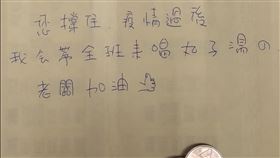 您撐住,疫情過後
我会帶全班來喝丸子湯の
老闆加油